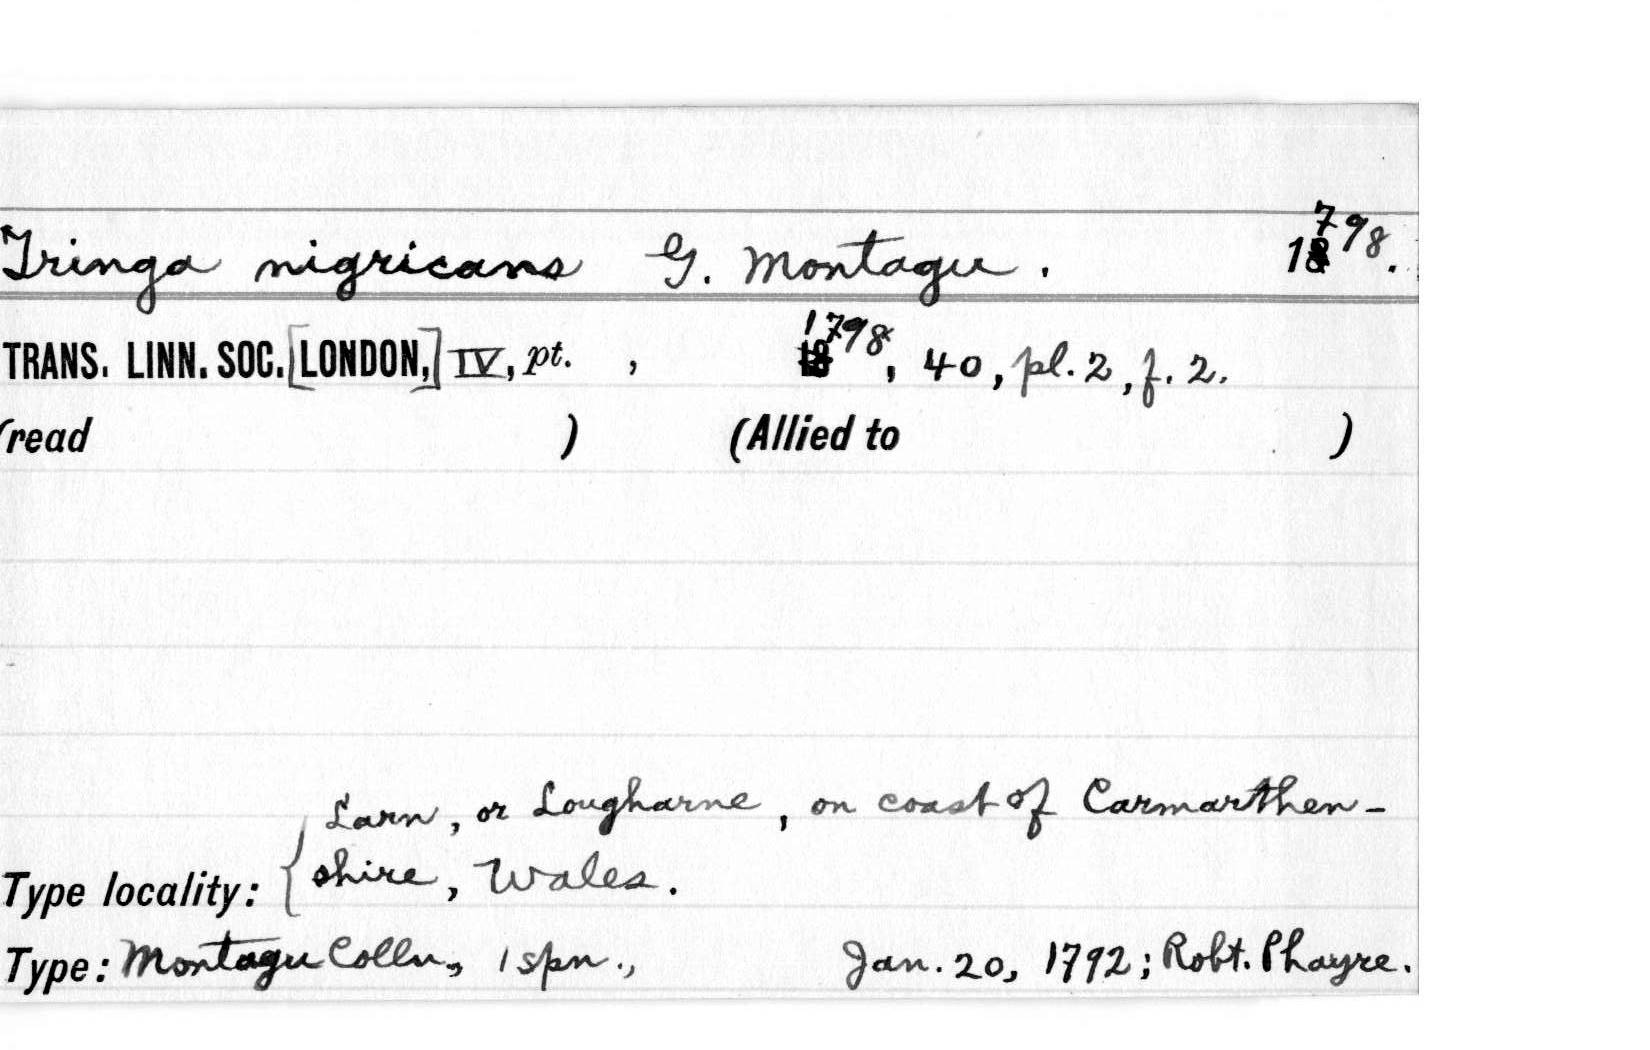 Tringa nigricans G. Montagu. 1798.
TRANS. LINN. SOC. [LONDON,] IV, pt. , 1798, 40, pl. 2, f. 2.
(read ) (Allied to )
Larn, or Lougharne, on coast of Carmarthen-
Type locality: { shire, Wales.
Type: Montagu Colln., 1 spn., Jan. 20, 1792; Robt. Phayre.